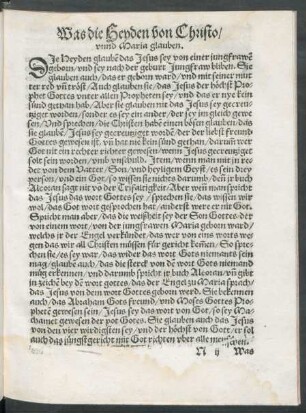 Was die Heyden von Christo/
vnnd Maria glauben.
DIe Heyden glaubẽ das Jesus sey von einer jungfrawẽ
geborn/vnd sey nach der geburt Jungfraw bliben. Sie
glauben auch/das er geborn ward/vnd mit seiner mut
ter red vñ tröst. Auch glauben sie/das Jesus der höchst Pro-
phet Gottes vnter allen Propheten sey/vnd das er nye kein
sünd gethan hab/Aber sie glauben nit das Jesus sey gecreu-
ziget worden/sunder es sey ein ander/der sey im gleych gewe
sen/Vnd sprachen/die Christen habẽ einen bösen glauben/das
sie glaubẽ/Jesus sey gecreuziget wordẽ/der der liebst freund
Gottes gewesen ist/vñ hat nie kein sünd gethan/darumb wer
Got nit ein rechter richter gewesen/wenn Jesus gecreuziget
solt sein worden/vmb vnschuld. Item/wenn man mit in re
det von dem Vatter/Son/vnd heyligem Geyst/es sein drey
person/vnd ein Got/so wissen sie nichts darumb/deñ jr buch
Alcoran sagt nit vor der Trifaltigkeit/Aber weñ man spricht
das Jesus das wort Gottes sey/sprechen sie/das wissen wir
wol/das Got wort gesprochen hat/anderst were er nit Got.
Spricht man aber/das die weißheit sey der Son Gottes/der
von einem wort/von der jungfrawen Maria geborn ward/
welchs jr der Engel verkündet/das wer von eins worts we
gen das wir all Christen müssen für gericht kemẽ/So spre-
chen sie/es sey war/das wider das wort Gots niemant sein
mag/glaubẽ auch/das die sterck von dẽ wort Gots niemand
müg erkennen/vnd darumb spricht jr buch Alcoran/vñ gibt
in zeichẽ bey dẽ wort gottes/das der Engel zu Maria sprach/
das Jesus von dem wort Gottes geborn werd. Sie bekennen
auch/das Abraham Gots freund/vnd Moses Gottes Pro-
phetẽ gewesen sein/Jesus sey das wort von Got/so sey Ma-
chamet gewesen der pot Gotes. Sie glauben auch das Jesus
von den vier wirdigsten sey/vnd der höchst von Gott/er sol
auch das jüngst gericht mit Got richten vber alle menschen.
N ij Was